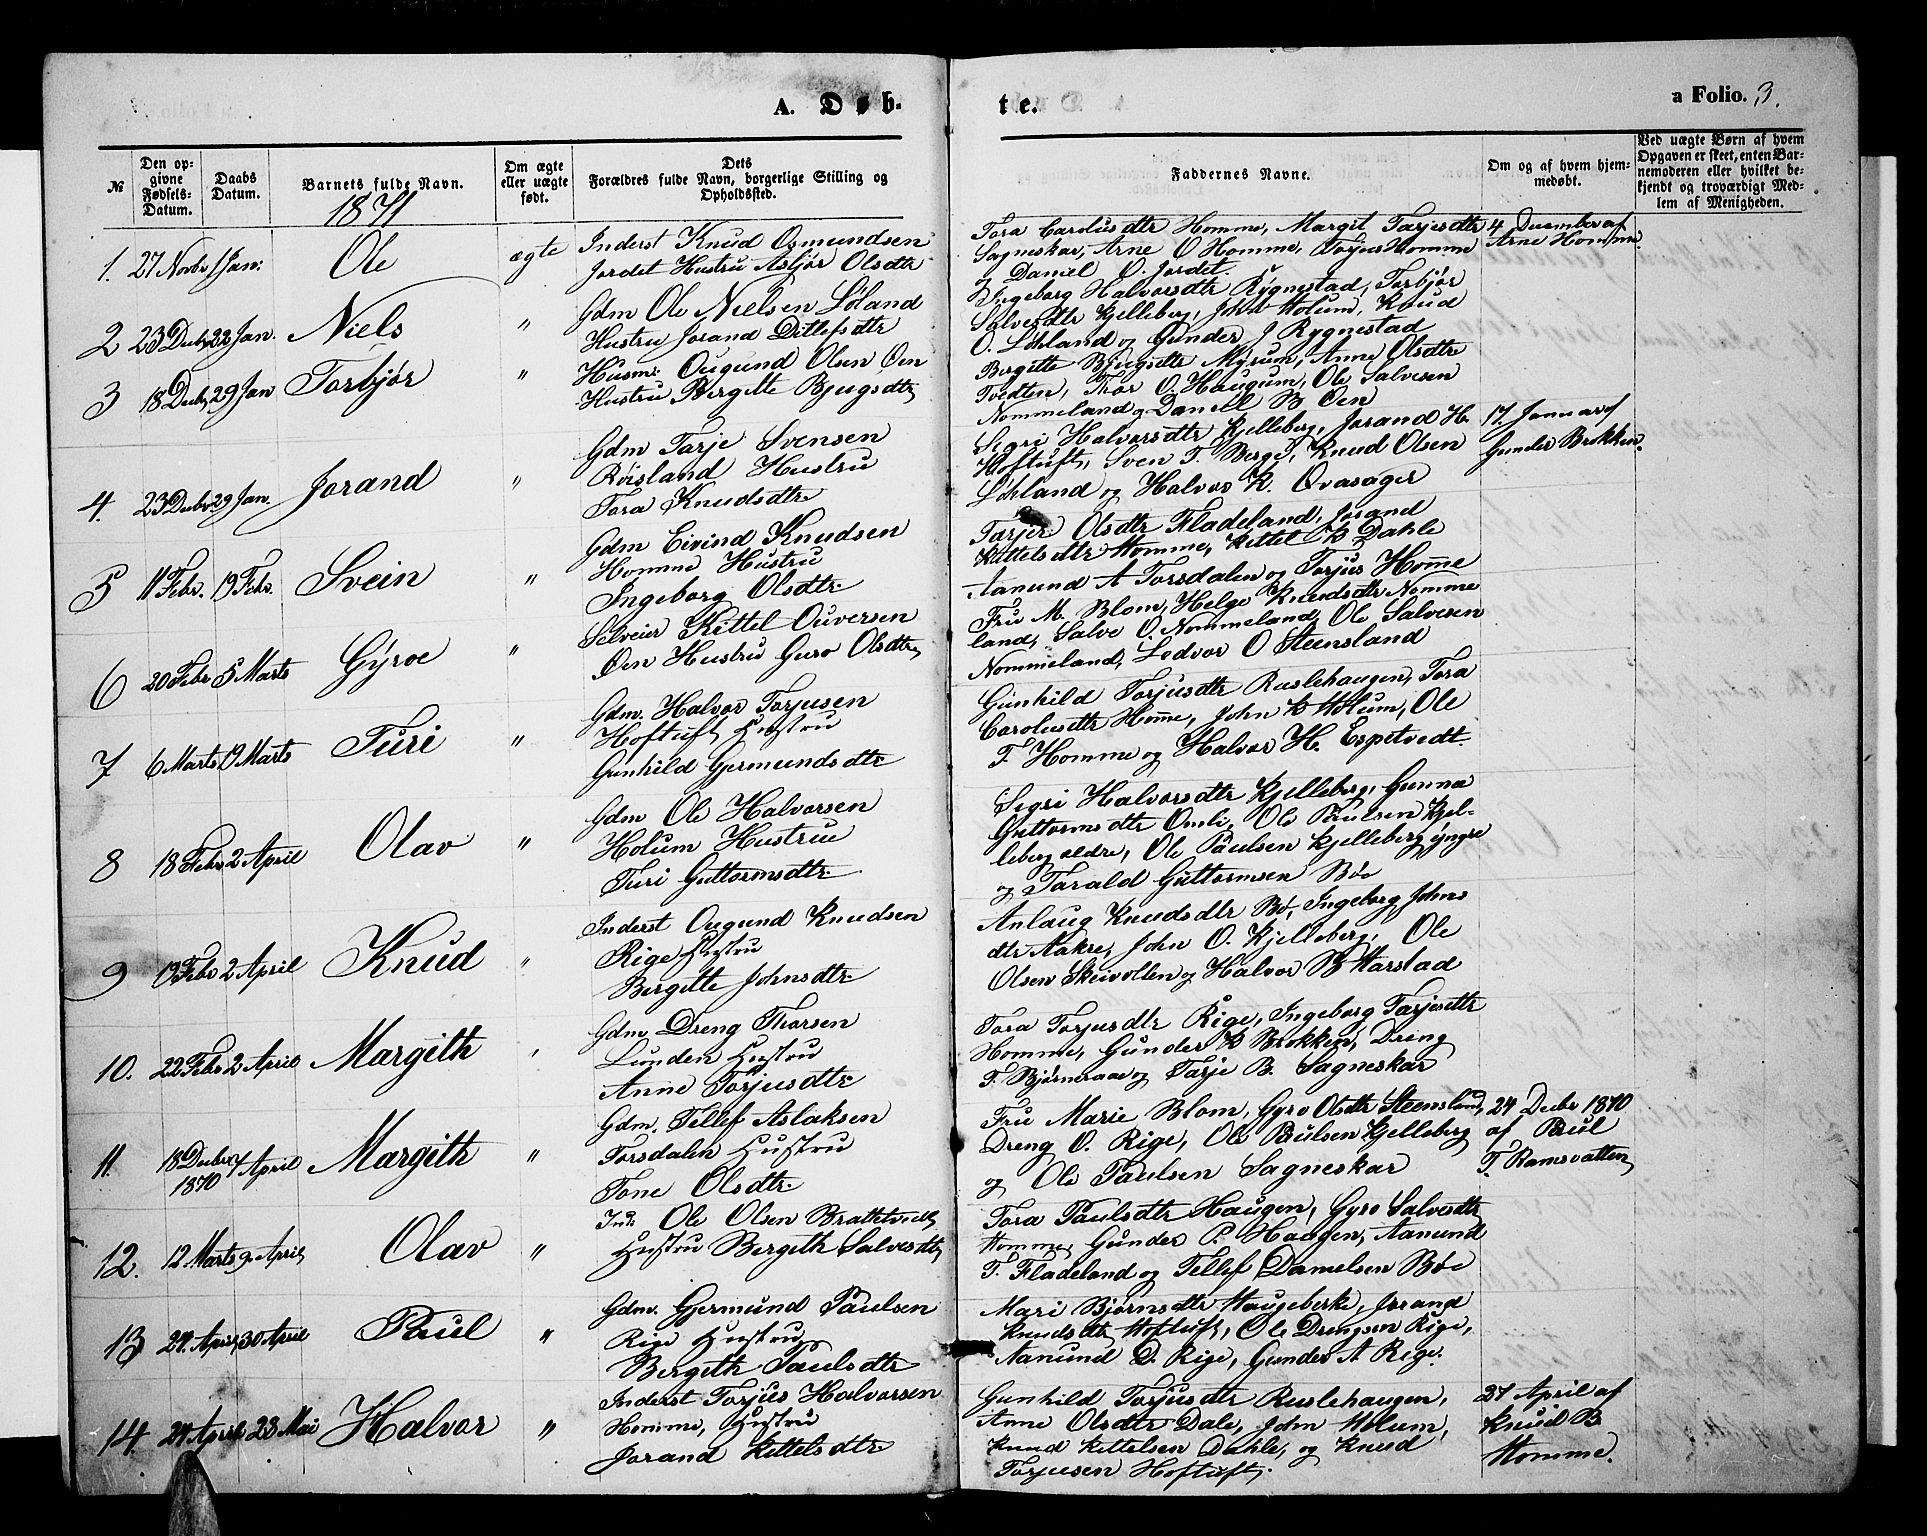 A. Døb-
te.
a Folio. 3.
№
Den op-
givne
Fødsels-
Datum.
Daabs
Datum.
Barnets fulde Navn.
Om ægte
eller uægte
født.
Dets
Forældres fulde Navn, borgerlige Stilling og
Opholdssted.
Faddernes Navne.
Om og af hvem hjem-
medøbt.
Ved uægte Børn af hvem
Opgaven er skeet, enten Bar-
nemoderen eller hvilket be-
kjendt og troværdigt Med-
lem af Menigheden.
1871
1. 27 Novbr 1 Jan: Ole ægte
Inderst Knud Osmundsen
Jordet Hustru Asbjør Olsdtr
Tora Carolusdtr Homme, Margit Tarjesdtr
Sagneskar, Arne O Homme, Torjus Homme
og Daniel O. Jordet.
4 December af
Arne Homme
2 23 Decbr 22 Jan. Niels "
Gdm Ole Nielsen Løland
Hustru Jorand Ditlefsdtr
Ingeborg Halvorsdtr Rygnestad, Torbjør
Salvesdtr Kjelleberg, John Holum, Knud
O. Løhland og Gunder J Rygnestad
3 18 Decbr 29 Jan Torbjør "
Husm. Ougund Olsen Øen
Hustru Bergite Bjugsdtr
Birgitte Bjugsdtr Myrum, Anne Olsdtr
Tvedten, Thor O. Haugum, Ole Salvesen
Nommeland og Daniell B Øen
4. 23 Decbr. 29 Jan. Jorand "
Gdm Tarje Svensen
Røisland Hustru
Tora Knudsdtr
Sigri Halvorsdtr Kjelleberg, Jorand H.
Hoftuft, Sven T. Berge, Knud Olsen
Løhland og Halvor K. Qvasager
17 Januar af
Gunder Brokken.
5 11 Febr. 19 Febr. Svein "
Gdm Eivind Knudsen
Homme Hustru
Ingeborg Olsdtr
Tarjer Olsdtr Fladeland, Jorand
Kittelsdtr Homme, Kittel K Dahle
Aanund A Torsdalen og Torjus Homme
6 20 Febr 5 Marts Gyroe "
Selveier Kittel Ouversen
Øen Hustru Guro Olsdtr
Fru M. Blom, Helge Knudsdtr Nomme
land, Salve O. Nommeland, Ole Salvesen
Nommeland, Ledvor O Steensland
7 6 Marts 19 Marts Turi "
Gdm. Halvor Torjusen
Hoftuft Hustru
Gunhild Gjermundsdtr
Gunhild Torjusdtr Ruslehaugen, Tora
Carolusdtr Homme, John K Holum, Ole
T. Homme og Halvor H. Espetvedt.
8 18 Febr 2 April Olav "
Gdm Ole Halvorsen
Holum Hustrue
Turi Guttormsdtr
Sigri Halvorsdtr Kjelleberg, Gunna
Guttormsdtr Omli, Ole Paulsen Kjel-
leberg ældre, Ole Paulsen Kjelleberg yngre
og Tarald Guttormsen Bøe
9 19 Febr 2 April Knud "
Inderst Ougund Knudsen
Rige Hustru
Bergitte Johnsdtr
Anlaug Knudsdtr Bø, Ingeborg Johns
dtr Aakre, John O. Kjelleberg, Ole
Olsen Skeivollen og Halvor B Harstad
10. 22 Febr 2 April Margith "
Gdm Dreng Thorsen
Lunden Hustru
Anne Torjusdtr
Tora Torjusdtr Rige, Ingeborg Tarjesdtr
Homme, Gunder K Brokken, Dreng
T. Bjørneraae og Tarje B. Sagneskar
11. 18 Decbr 7 April Margith "
1870
Gdm. Tellef Aslaksen
Torsdalen Hustru
Tone Olsdtr
Fru Marie Blom, Gyro Olsdtr Steensland,
Dreng O. Rige, Ole Paulsen Kjelleberg
og Ole Paulsen Sagneskar
24 Decbr 1870
af Paul
T. Ramsvatten
12. 12 Marts 9 April Olav "
Ind. Ole Olsen Brattetveit
Hustru Bergith Salvesdtr
Tora Paulsdtr Haugen, Gyro Salvesdtr
Homme, Gunder P. Haugen, Aanund
T. Fladeland og Tellef Danielsen Bøe
13 24. April 30 April Paul "
Gdm. Gjermund Paulsen
Rige Hustru
Bergith Paulsdtr
Mari Bjørnsdtr Haugeberke, Jorand
Knudsdtr Hoftuft, Ole Drengsen Rige,
Aanund D. Rige, Gunder A Rige.
14. 24 April 28 Mai Halvor "
Inderst Torjus Halvorsen
Homme, Hustru
Jorand Kittelsdtr
Gunhild Torjusdtr Ruslehaugen,
Anne Olsdtr Dale, John Holum,
Knud Kittelsen Dahle, og Knud
Torjusen Hoftuft.
27 April af
Knud B
Homme.